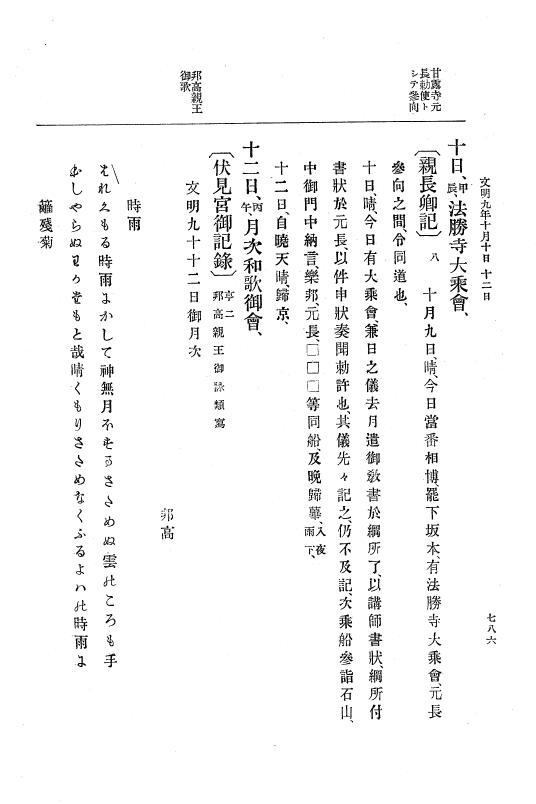 文明九年十月十日 十二日
七八六
甘露寺元
長勅使ト
シテ參向
邦高親王
御歌
十日、甲辰、法勝寺大乘會、
〔親長卿記〕 八 十月九日、晴、今日當番相博、罷下坂本、有法勝寺大乘會、元長
參向之間、令同道也、
十日、晴、今日有大乘會、兼日之儀去月遣御敎書於綱所了、以講師書狀、綱所付
書狀於元長、以件申狀奏聞勅許也、其儀先々記之、仍不及記、次乘船參詣石山、
中御門中納言、樂邦、元長、□□□等同船、及晩歸華、入夜雨下、
十二日、自曉天晴、歸京、
十二日、丙午、月次和歌御會、
〔伏見宮御記錄〕 亨二 邦高親王御詠類寫
文明九十十二日御月次
邦高
時雨
それくもる時雨よかして神無月不もるさためぬ雲のころも手
むしやらぬ わか堂もと哉晴くもりさためなくふるよハの時雨に
籬殘菊